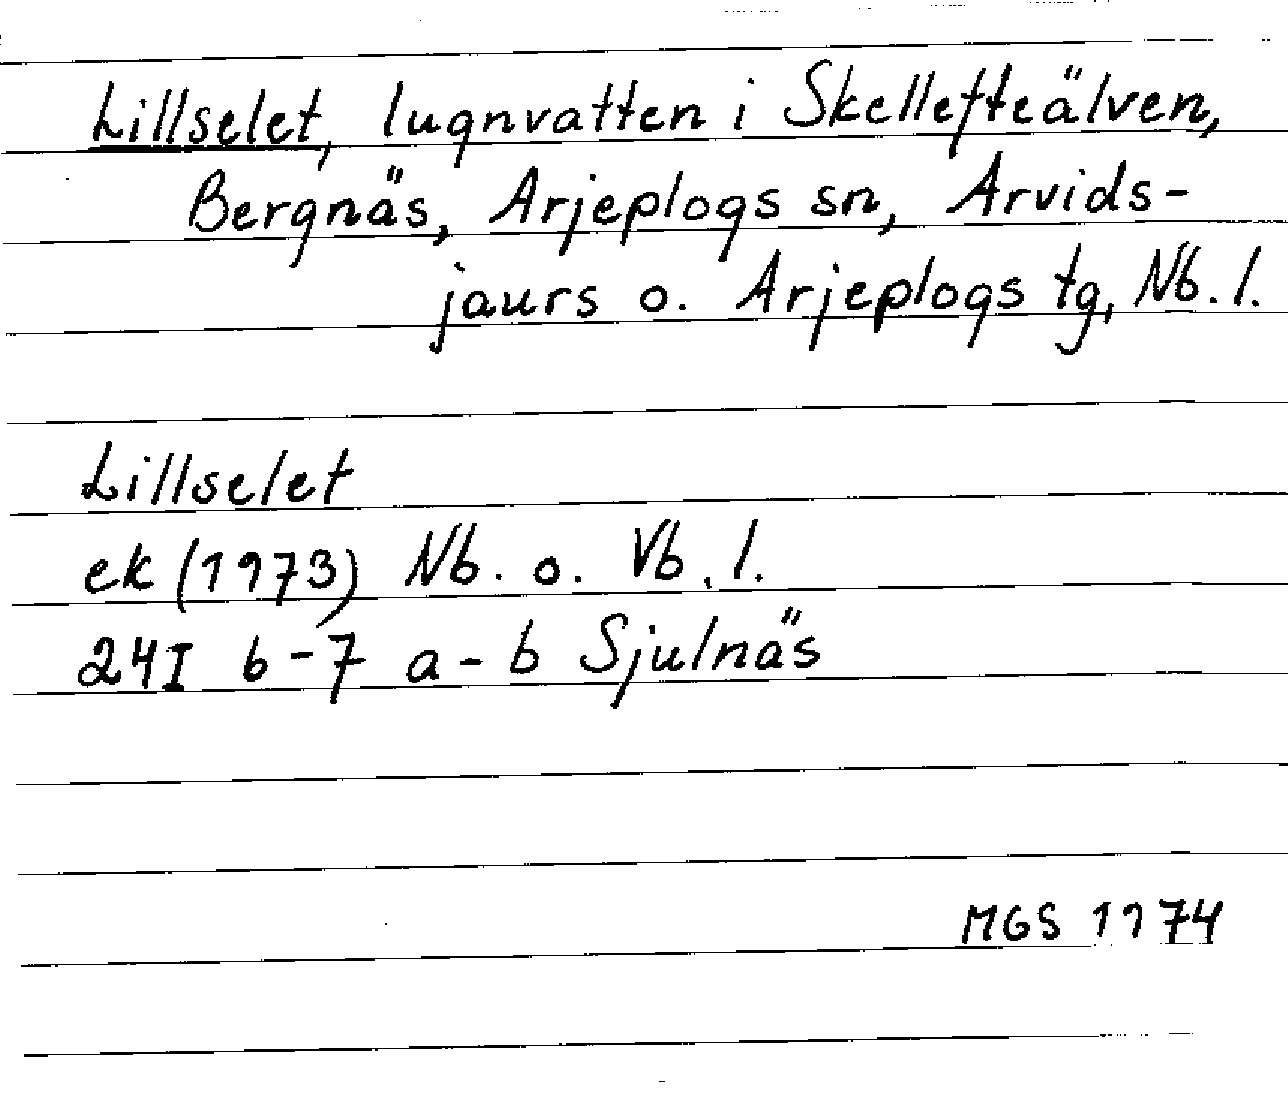 Lillselet, lugnvatten i Skellefteälven,
Bergnäs, Arjeplogs sn, Arvids-
jaurs o. Arjeplogs tg, Nb. l.
Lillselet
ek (1973) Nb. o. Vb. l.
24I 6-7 a-b Sjulnäs
MGS 1974